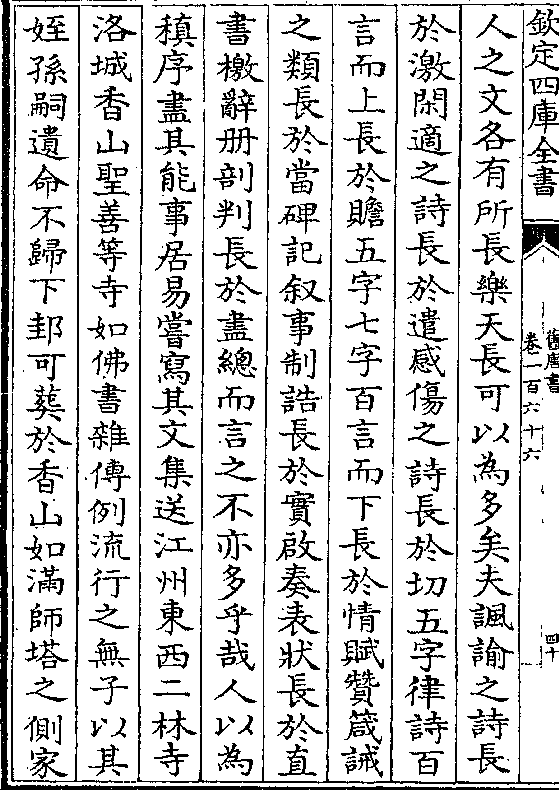 欽定四庫全書
舊唐書
卷一百六十六
四十
人之文各有所長樂天長可以為多矣夫諷諭之詩長
於激閑適之詩長於遣感傷之詩長於切五字律詩百
言而上長於贍五字七字百言而下長於情賦贊箴誡
之類長於當碑記叙事制誥長於實啟奏表狀長於直
書檄辭册剖判長於盡總而言之不亦多乎哉人以為
稹序盡其能事居易嘗寫其文集送江州東西二林寺
洛城香山聖善等寺如佛書雜傳例流行之無子以其
姪孫嗣遺命不歸下邽可葬於香山如滿師塔之側家